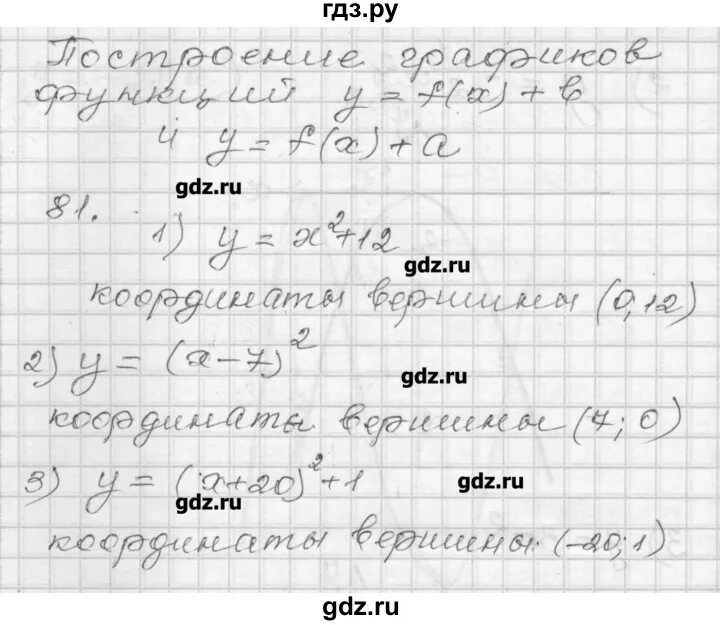 гдз.ру
Построение графиков
функций y = f(x) + b
и y = f(x) + a
gdz.ru
81.
1) y = x²+12
gdz.ru
координаты вершины (0,12)
2) y = (x-7)²
gdz.ru
координаты вершины (7; 0)
3) y = (x+20)²+1
gdz.ru
gdz.ru
координаты вершины: (-20; 1)
gdz.ru